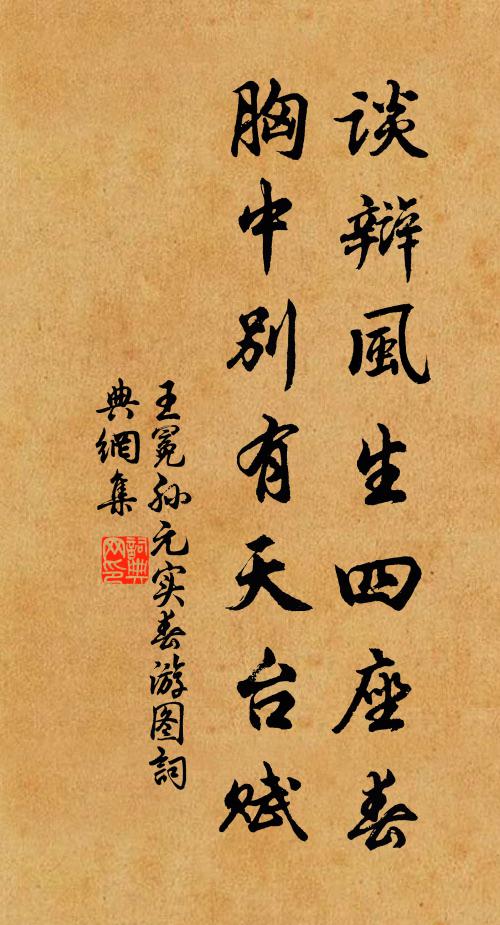 谈辩風生四座春
胸中别有天台赋
王冕孙元实春游图詞
典網集
詞典网印